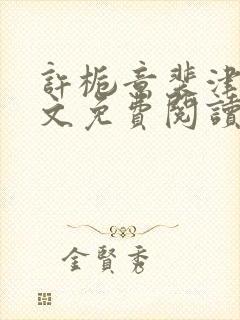 許梔意裴津
文免費閱讀
金賢秀